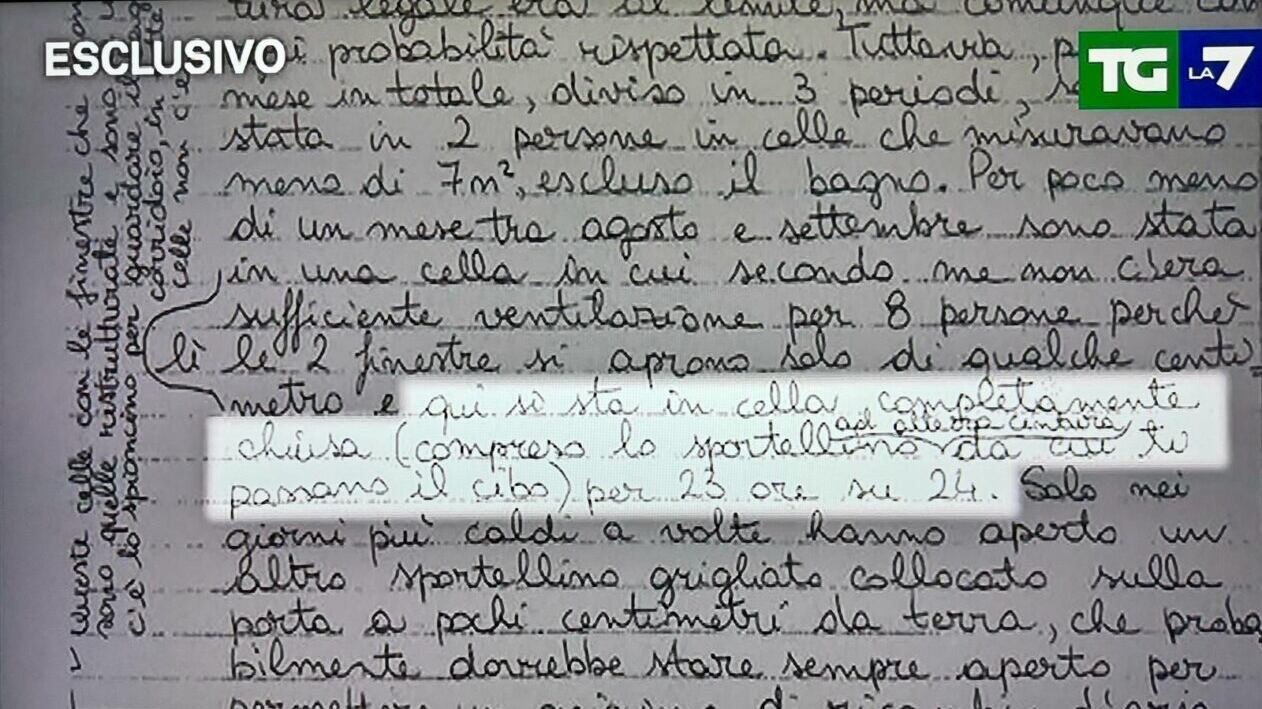 ESCLUSIVO
TG LA7
tura legale era al limite, ma comunque con
i probabilità rispettata. Tuttavia, p
mese in totale, diviso in 3 periodi, s
stata in 2 persone in celle che misuravano
meno di 7m², escluso il bagno. Per poco meno
di un mese tra agosto e settembre sono stata
in una cella in cui secondo me non c'era
sufficiente ventilazione per 8 persone perchè
lì le 2 finestre si aprono solo di qualche centi=
metro e qui si sta in cella completamente
chiusa (compreso lo sportellino ad altezza cintura da cui ti
passano il cibo) per 23 ore su 24. Solo nei
giorni più caldi a volte hanno aperto un
altro sportellino grigliato collocato sulla
porta a pochi centimetri da terra, che proba
bilmente dovrebbe stare sempre aperto per
di ricambio d'aria
queste celle con le finestre che
sono quelle ristrutturate e sono
c'è lo spioncino per guardare il
corridoio, in
celle non c'è